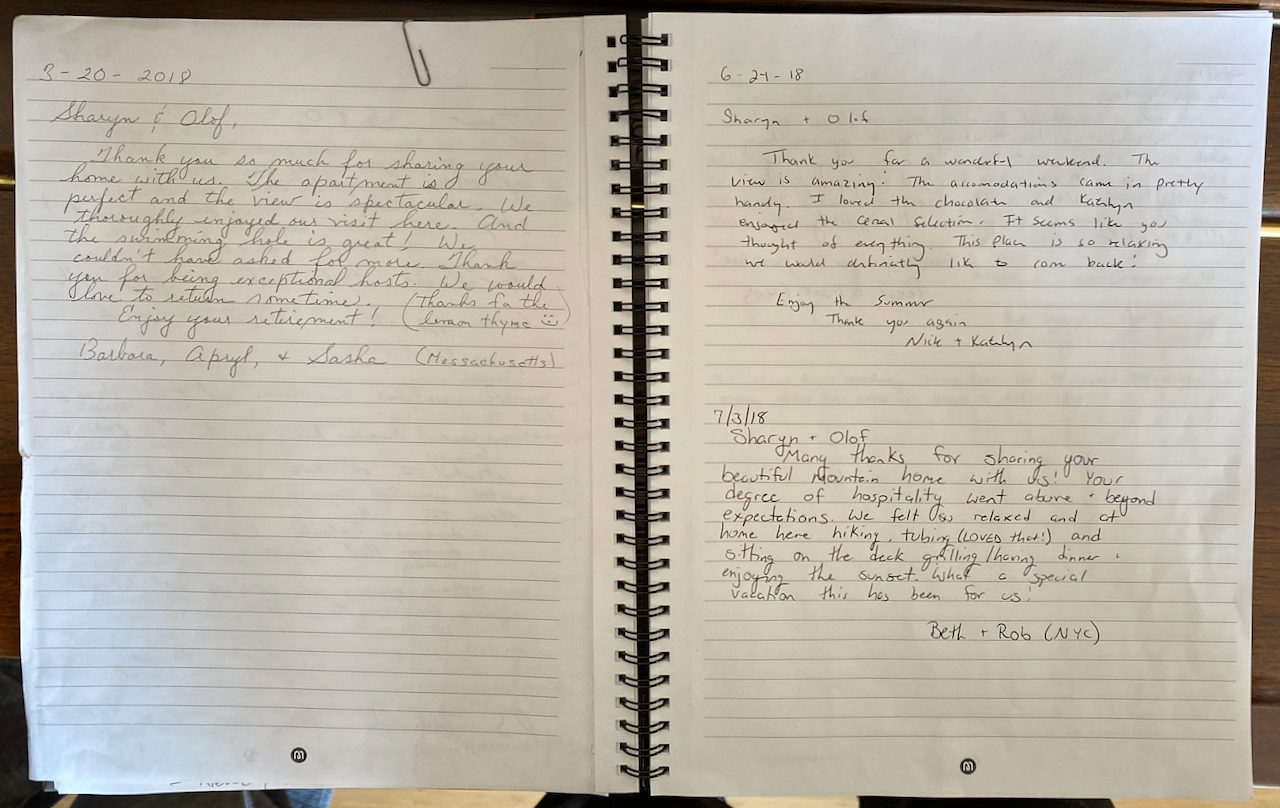 3-20-2018
Sharyn & Olof,
Thank you so much for sharing your
home with us. The apartment is
perfect and the view is spectacular. We
thoroughly enjoyed our visit here. And
the swimming hole is great! We
couldn't have asked for more. Thank
you for being exceptional hosts. We would
love to return sometime. (Thanks for the
Enjoy your retirement! lemon thyme ☺)
Barbara, Apryl, & Sasha (Massachusetts)
6-24-18
Sharyn + Olof
Thank you for a wonderful weekend. The
view is amazing! The accomodations came in pretty
handy. I loved the chocolate and Katelyn
enjoyed the cereal selection. It seems like you
thought of everything. This place is so relaxing
we would definiatly like to come back!
Enjoy the Summer
Thank you again
Nick + Katelyn
7/3/18
Sharyn + Olof
Many thanks for sharing your
beautiful mountain home with us! Your
degree of hospitality went above + beyond
expectations. We felt so relaxed and at
home here hiking, tubing (LOVED that!) and
sitting on the deck grilling/having dinner +
enjoying the sunset. What a special
vacation this has been for us!
Beth + Rob (NYC)